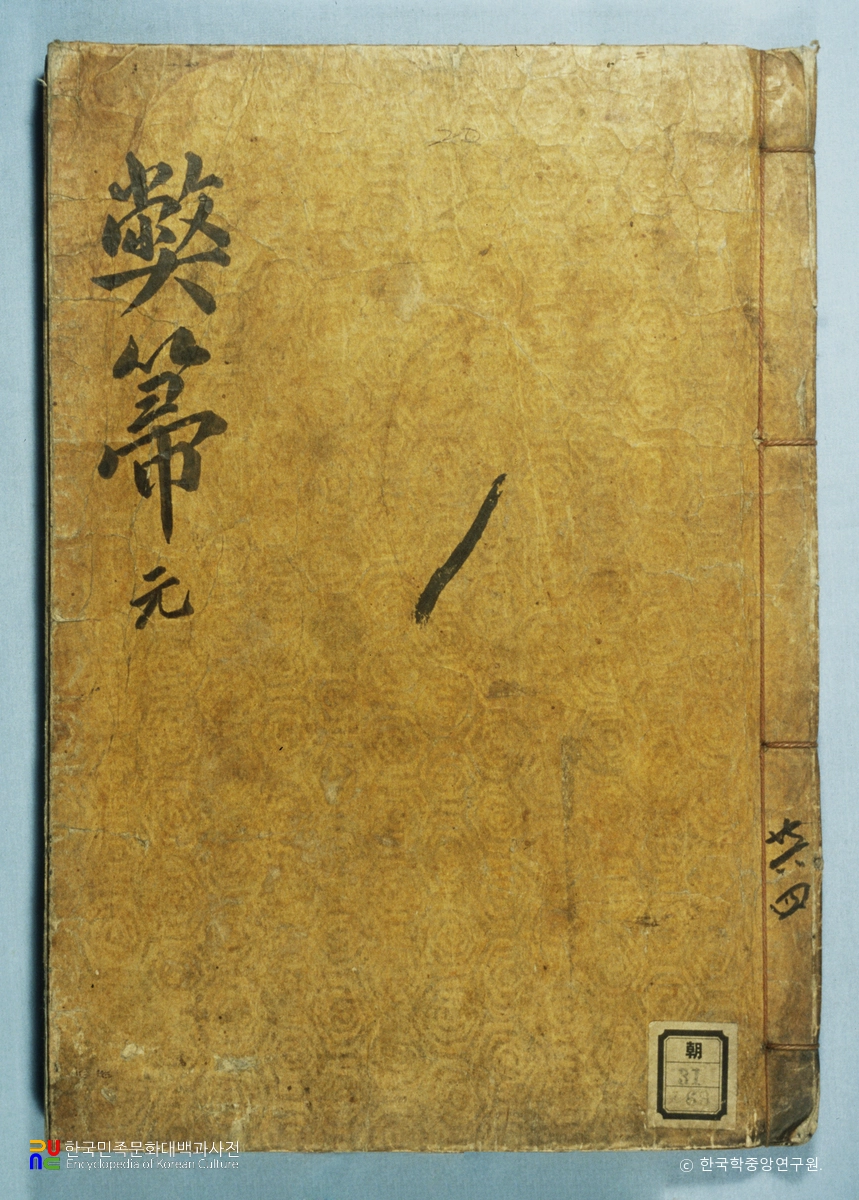 弊箒 元
共四
朝
31
한국민족문화대백과사전
Encyclopedia of Korean Culture
© 한국학중앙연구원.